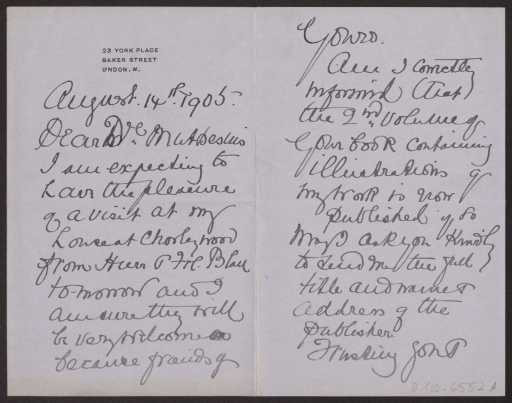 23 YORK PLACE
BAKER STREET
LONDON, W.
August 14th 1905.
Dear Mr Muthesius
I am expecting to
have the pleasure
of a visit at my
house at Chorleywood
from Herr & Fr
tomorrow and I
am sure they will
be very welcome
because friends of
Yours.
Am I correctly
informed that
the 2nd Volume of
Your book containing
illustrations of
my work is now
published if so
may I ask you kindly
to send me the full
title and name &
address of the
Publisher
Trusting you &